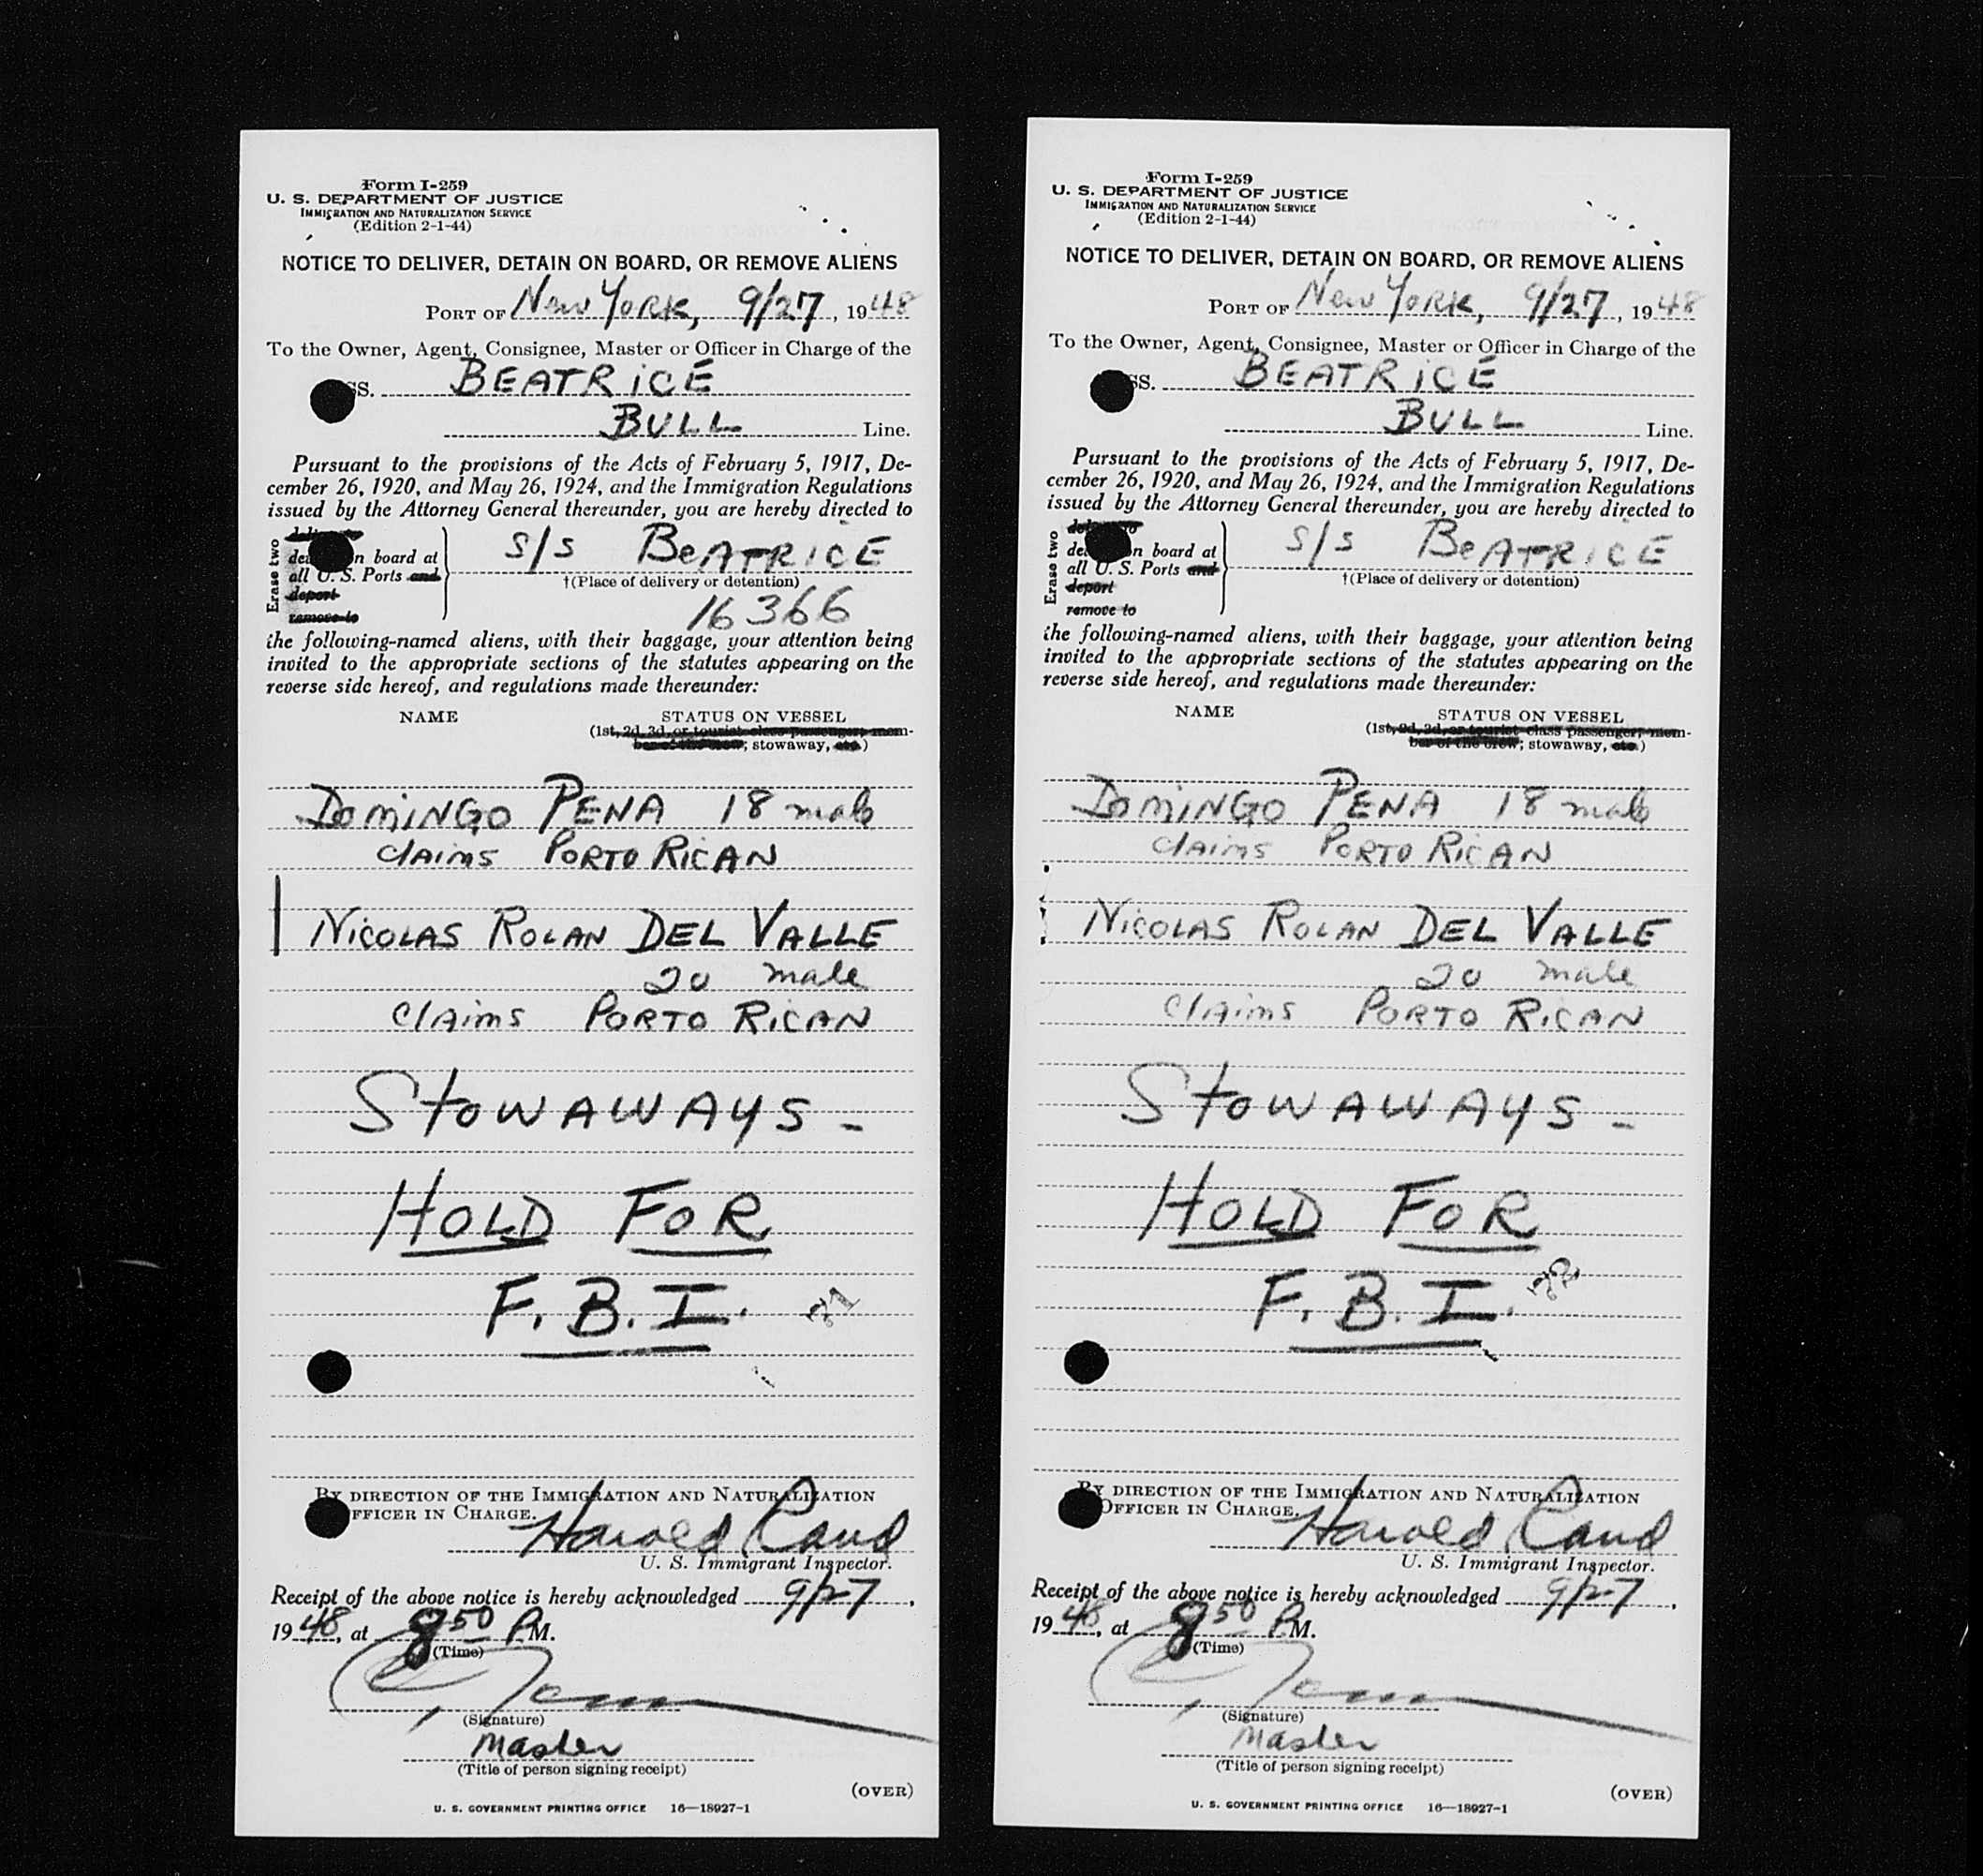 Form I-259
U. S. DEPARTMENT OF JUSTICE
IMMIGRATION AND NATURALIZATION SERVICE
(Edition 2-1-44)
NOTICE TO DELIVER, DETAIN ON BOARD, OR REMOVE ALIENS
PORT OF New York, 9/27, 1948
To the Owner, Agent, Consignee, Master or Officer in Charge of the
SS. BEATRICE
BULL Line.
Pursuant to the provisions of the Acts of February 5, 1917, De-
cember 26, 1920, and May 26, 1924, and the Immigration Regulations
issued by the Attorney General thereunder, you are hereby directed to
Erase two
n board at
all U. S. Ports and
deport
remove to
S/S BEATRICE
†(Place of delivery or detention)
16366
the following-named aliens, with their baggage, your attention being
invited to the appropriate sections of the statutes appearing on the
reverse side hereof, and regulations made thereunder:
NAME STATUS ON VESSEL
(1st, 2d, 3d, or tourist class passenger; mem-
ber of the crew; stowaway, etc.)
DOMINGO PENA 18 male
claims PORTO RICAN
NICOLAS ROLAN DEL VALLE
20 male
claims PORTO RICAN
STOWAWAYS -
HOLD FOR
F. B. I. 21
BY DIRECTION OF THE IMMIGRATION AND NATURALIZATION
FFICER IN CHARGE.
Harold Rand
U. S. Immigrant Inspector.
Receipt of the above notice is hereby acknowledged 9/27,
1948, at 8 50 P.M.
(Time)
(Signature)
Master
(Title of person signing receipt)
(OVER)
U. S. GOVERNMENT PRINTING OFFICE 16—18927-1
Form I-259
U. S. DEPARTMENT OF JUSTICE
IMMIGRATION AND NATURALIZATION SERVICE
(Edition 2-1-44)
NOTICE TO DELIVER, DETAIN ON BOARD, OR REMOVE ALIENS
PORT OF New York, 9/27, 1948
To the Owner, Agent, Consignee, Master or Officer in Charge of the
SS. BEATRICE
BULL Line.
Pursuant to the provisions of the Acts of February 5, 1917, De-
cember 26, 1920, and May 26, 1924, and the Immigration Regulations
issued by the Attorney General thereunder, you are hereby directed to
Erase two
n board at
all U. S. Ports and
deport
remove to
S/S BEATRICE
†(Place of delivery or detention)
the following-named aliens, with their baggage, your attention being
invited to the appropriate sections of the statutes appearing on the
reverse side hereof, and regulations made thereunder:
NAME STATUS ON VESSEL
(1st, 2d, 3d, or tourist class passenger; mem-
ber of the crew; stowaway, etc.)
DOMINGO PENA 18 male
claims PORTO RICAN
NICOLAS ROLAN DEL VALLE
20 male
claims PORTO RICAN
STOWAWAYS -
HOLD FOR
F. B. I. 22
BY DIRECTION OF THE IMMIGRATION AND NATURALIZATION
OFFICER IN CHARGE.
Harold Rand
U. S. Immigrant Inspector.
Receipt of the above notice is hereby acknowledged 9/27,
1948, at 8 50 P.M.
(Time)
(Signature)
Master
(Title of person signing receipt)
(OVER)
U. S. GOVERNMENT PRINTING OFFICE 16—18927-1